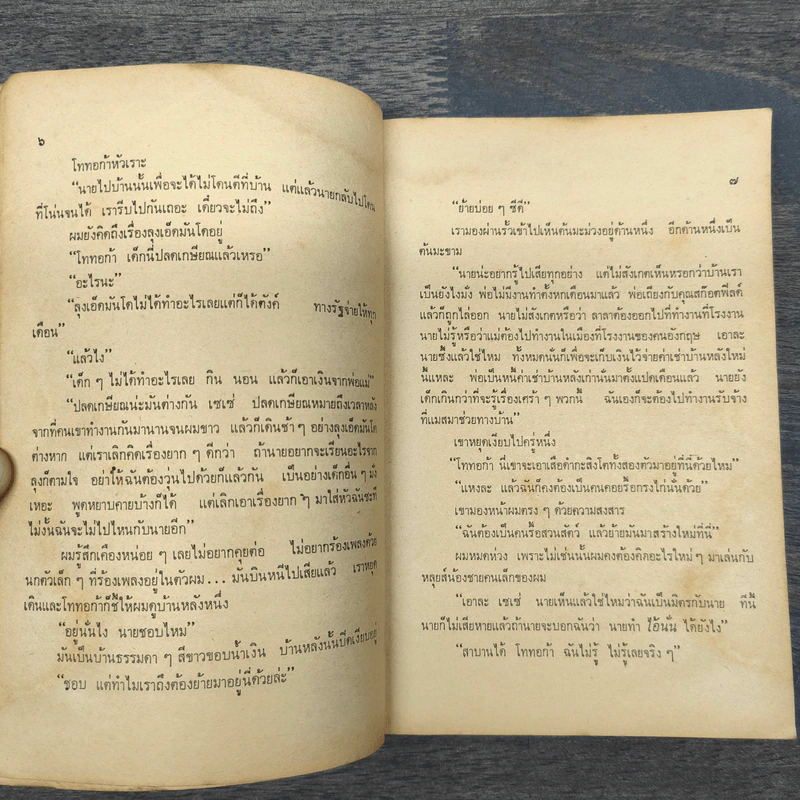 ๖
โททอก้าหัวเราะ
“นายไปบ้านนั้นเพื่อจะได้ไม่โดนตีที่บ้าน แต่แล้วนายกลับไปโดน
ที่โน่นจนได้ เรารีบไปกันเถอะ เดี๋ยวจะไม่ถึง”
ผมยังคิดถึงเรื่องลุงเอ็ดมันโดอยู่
“โททอก้า เด็กนี่ปลดเกษียณแล้วเหรอ”
“อะไรนะ”
“ลุงเอ็ดมันโดไม่ได้ทำอะไรเลยแต่ก็ได้ตังค์ ทางรัฐจ่ายให้ทุก
เดือน”
“แล้วไง”
“เด็ก ๆ ไม่ได้ทำอะไรเลย กิน นอน แล้วก็เอาเงินจากพ่อแม่”
“ปลดเกษียณน่ะมันต่างกัน เซเซ่ ปลดเกษียณหมายถึงเวลาหลัง
จากที่คนเขาทำงานกันมานานจนผมขาว แล้วก็เดินช้า ๆ อย่างลุงเอ็ดมันโด
ต่างหาก แต่เราเลิกคิดเรื่องยาก ๆ ดีกว่า ถ้านายอยากจะเรียนอะไรจาก
ลุงก็ตามใจ อย่าให้ฉันต้องวุ่นไปด้วยก็แล้วกัน เป็นอย่างเด็กอื่น ๆ มั่ง
เหอะ พูดหยาบคายบ้างก็ได้ แต่เลิกเอาเรื่องยาก ๆ มาใส่หัวฉันซะที
ไม่งั้นฉันจะไม่ไปไหนกับนายอีก”
ผมรู้สึกเคืองหน่อย ๆ เลยไม่อยากคุยต่อ ไม่อยากร้องเพลงด้วย
นกตัวเล็ก ๆ ที่ร้องเพลงอยู่ในตัวผม... มันบินหนีไปเสียแล้ว เราหยุด
เดินและโททอก้าก็ชี้ให้ผมดูบ้านหลังหนึ่ง
“อยู่นั่นไง นายชอบไหม”
มันเป็นบ้านธรรมดา ๆ สีขาวขอบน้ำเงิน บ้านหลังนั้นปิดเงียบอยู่
“ชอบ แต่ทำไมเราถึงต้องย้ายมาอยู่นี่ด้วยล่ะ”
๗
“ย้ายบ่อย ๆ ซีดี”
เรามองผ่านรั้วเข้าไปเห็นต้นมะม่วงอยู่ด้านหนึ่ง อีกด้านหนึ่งเป็น
ต้นมะขาม
“นายน่ะอยากรู้ไปเสียทุกอย่าง แต่ไม่สังเกตเห็นหรอกว่าบ้านเรา
เป็นยังไงมั่ง พ่อไม่มีงานทำตั้งหกเดือนมาแล้ว พ่อเถียงกับคุณสก๊อตฟีลด์
แล้วก็ถูกไล่ออก นายไม่สังเกตหรือว่า ลาลาต้องออกไปที่ทำงานที่โรงงาน
นายไม่รู้หรือว่าแม่ต้องไปทำงานในเมืองที่โรงงานของคนอังกฤษ เอาละ
นายซึ้งแล้วใช่ไหม ทั้งหมดนั่นก็เพื่อจะเก็บเงินไว้จ่ายค่าเช่าบ้านหลังใหม่
นี่แหละ พ่อเป็นหนี้ค่าเช่าบ้านหลังเก่านั่นมาตั้งแปดเดือนแล้ว นายยัง
เด็กเกินกว่าที่จะรู้เรื่องเศร้า ๆ พวกนี้ ฉันเองก็จะต้องไปทำงานรับจ้าง
ที่แมสมาช่วยทางบ้าน”
เขาหยุดเงียบไปครู่หนึ่ง
“โททอก้า นี่เขาจะเอาเสือดำกะสิงโตทั้งสองตัวมาอยู่ที่นี่ด้วยไหม”
“แหงละ แล้วฉันก็คงต้องเป็นคนคอยรื้อกรงไก่นั่นด้วย”
เขามองหน้าผมตรง ๆ ด้วยความสงสาร
“ฉันต้องเป็นคนรื้อสวนสัตว์ แล้วย้ายมันมาสร้างใหม่ที่นี่”
ผมหมดห่วง เพราะไม่เช่นนั้นผมคงต้องคิดอะไรใหม่ ๆ มาเล่นกับ
หลุยส์น้องชายคนเล็กของผม
“เอาละ เซเซ่ นายเห็นแล้วใช่ไหมว่าฉันเป็นมิตรกับนาย ทีนี้
นายก็ไม่เสียหายแล้วถ้านายจะบอกฉันว่า นายทำ ไอ้นั่น ได้ยังไง”
“สาบานได้ โททอก้า ฉันไม่รู้ ไม่รู้เลยจริง ๆ”